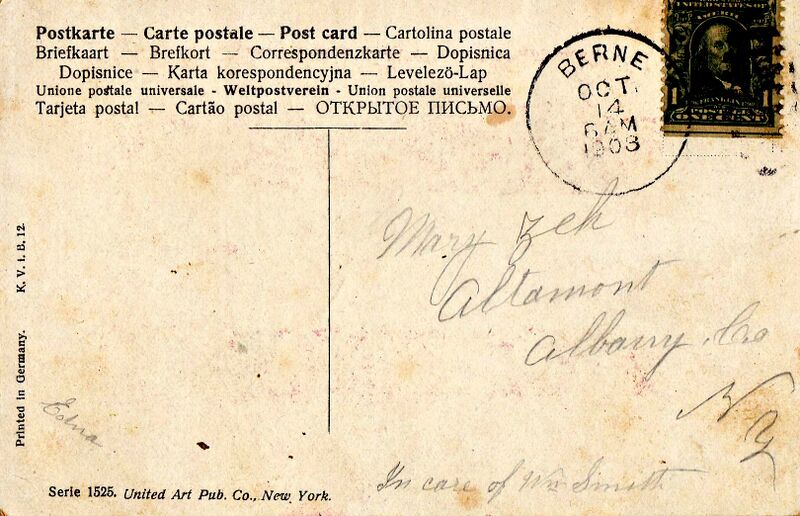 Postkarte — Carte postale — Post card — Cartolina postale
Briefkaart — Brefkort — Correspondenzkarte — Dopisnica
Dopisnice — Karta korespondencyjna — Levelezö-Lap
Unione postale universale - Weltpostverein - Union postale universelle
Tarjeta postal — Cartão postal — ОТКРЫТОЕ ПИСЬМО.
BERNE
OCT.
14
6 AM
1908
UNITED STATES OF
AMERICA
FRANKLIN
1 POSTAGE 1
ONE CENT
Mary Zeh
Altamont
Albany Co
N Y
In care of Wm Smith
Edna
Printed in Germany. K. V. i. B. 12.
Serie 1525. United Art Pub. Co., New York.